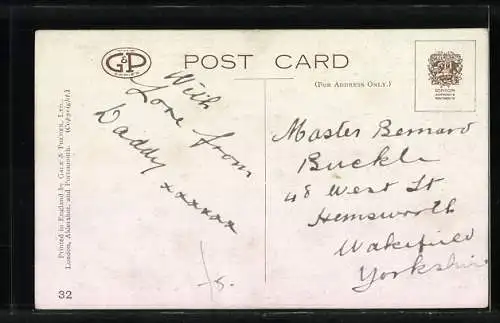 GALE &
G&P
SERIES
POST CARD
(FOR ADDRESS ONLY.)
With
Love from
Daddy
xxxxxx
Master Bernard
Buckle
48 West St
Hemsworth
Wakefield
Yorkshire
Printed in England by GALE & POLDEN, LTD.,
London, Aldershot, and Portsmouth. (Copyright.)
32